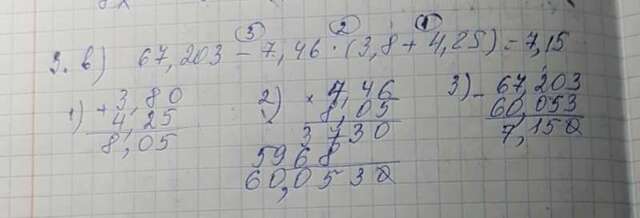 ③ ② ①
3. в) 67,203 - 7,46 · (3,8 + 4,25) = 7,15
1) + 3,80
4,25
8,05
2) × 7,46
8,05
3730
5968
60,0530
3) - 67,203
60,053
7,150